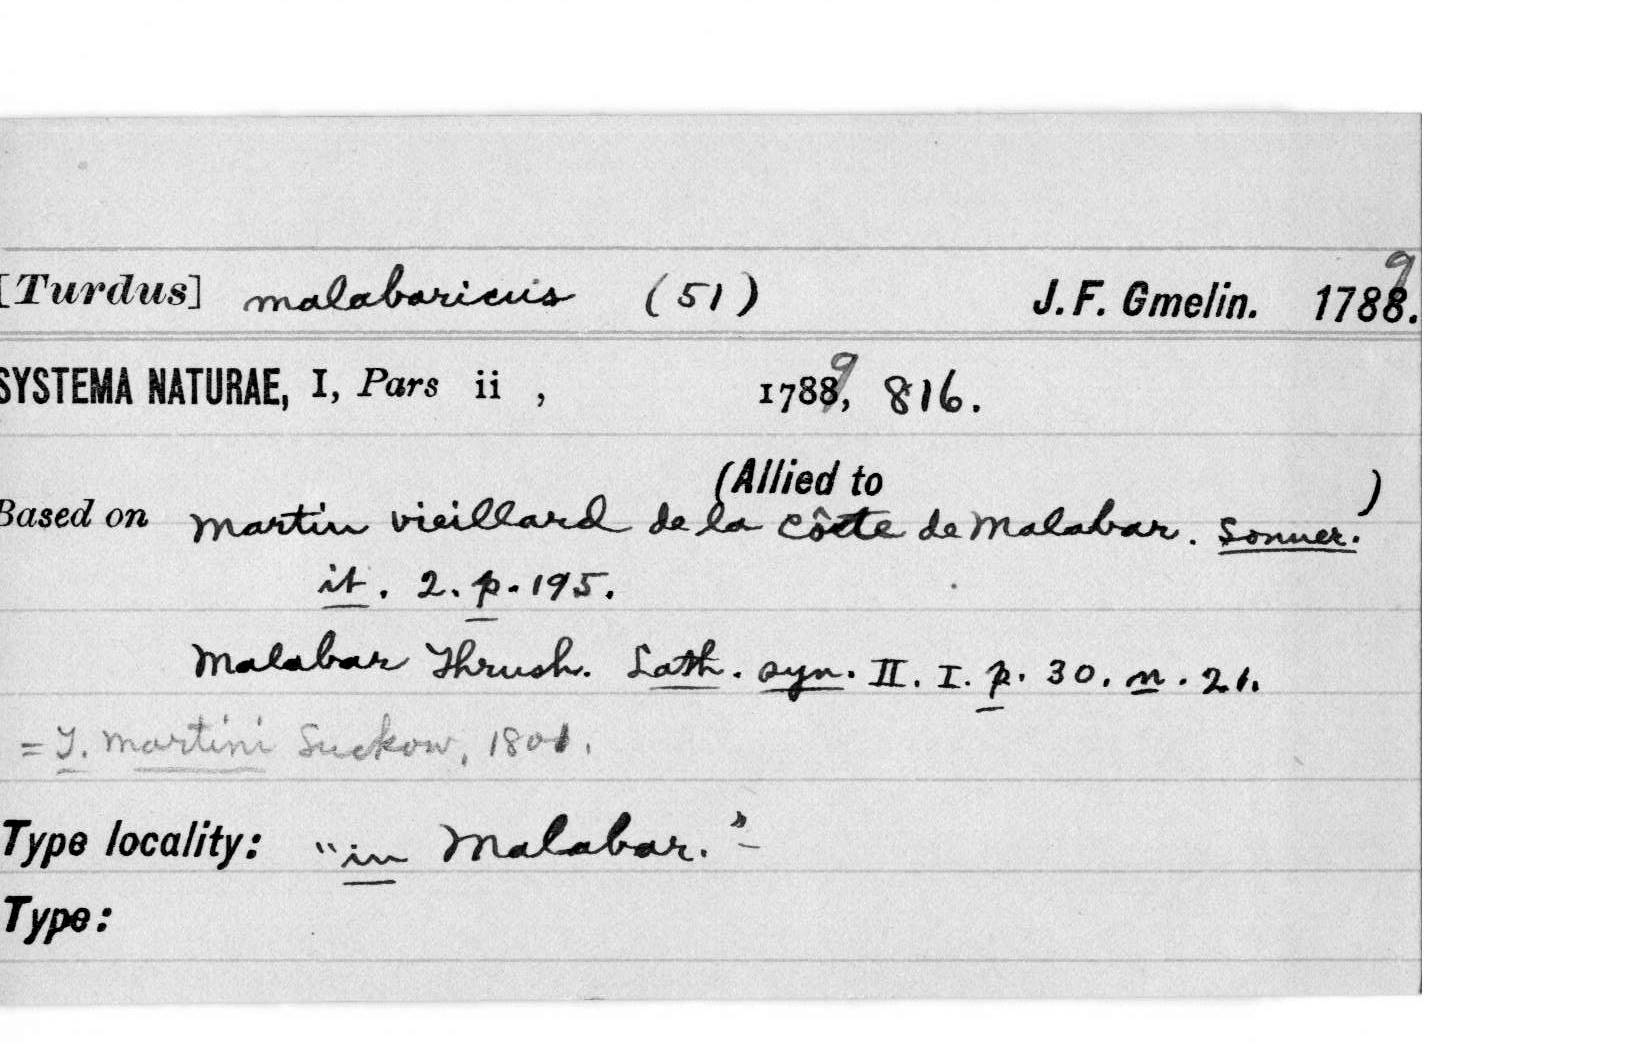 [Turdus] malabaricus (51) J. F. Gmelin. 1788.9
SYSTEMA NATURAE, I, Pars ii , 17889, 816.
(Allied to )
Based on Martin vieillard de la Côte de Malabar. Sonner.
it. 2. p. 195.
Malabar Thrush. Lath. syn. II. I. p. 30. n. 21.
= T. martini Suckow, 1801.
Type locality: "in Malabar."-
Type: